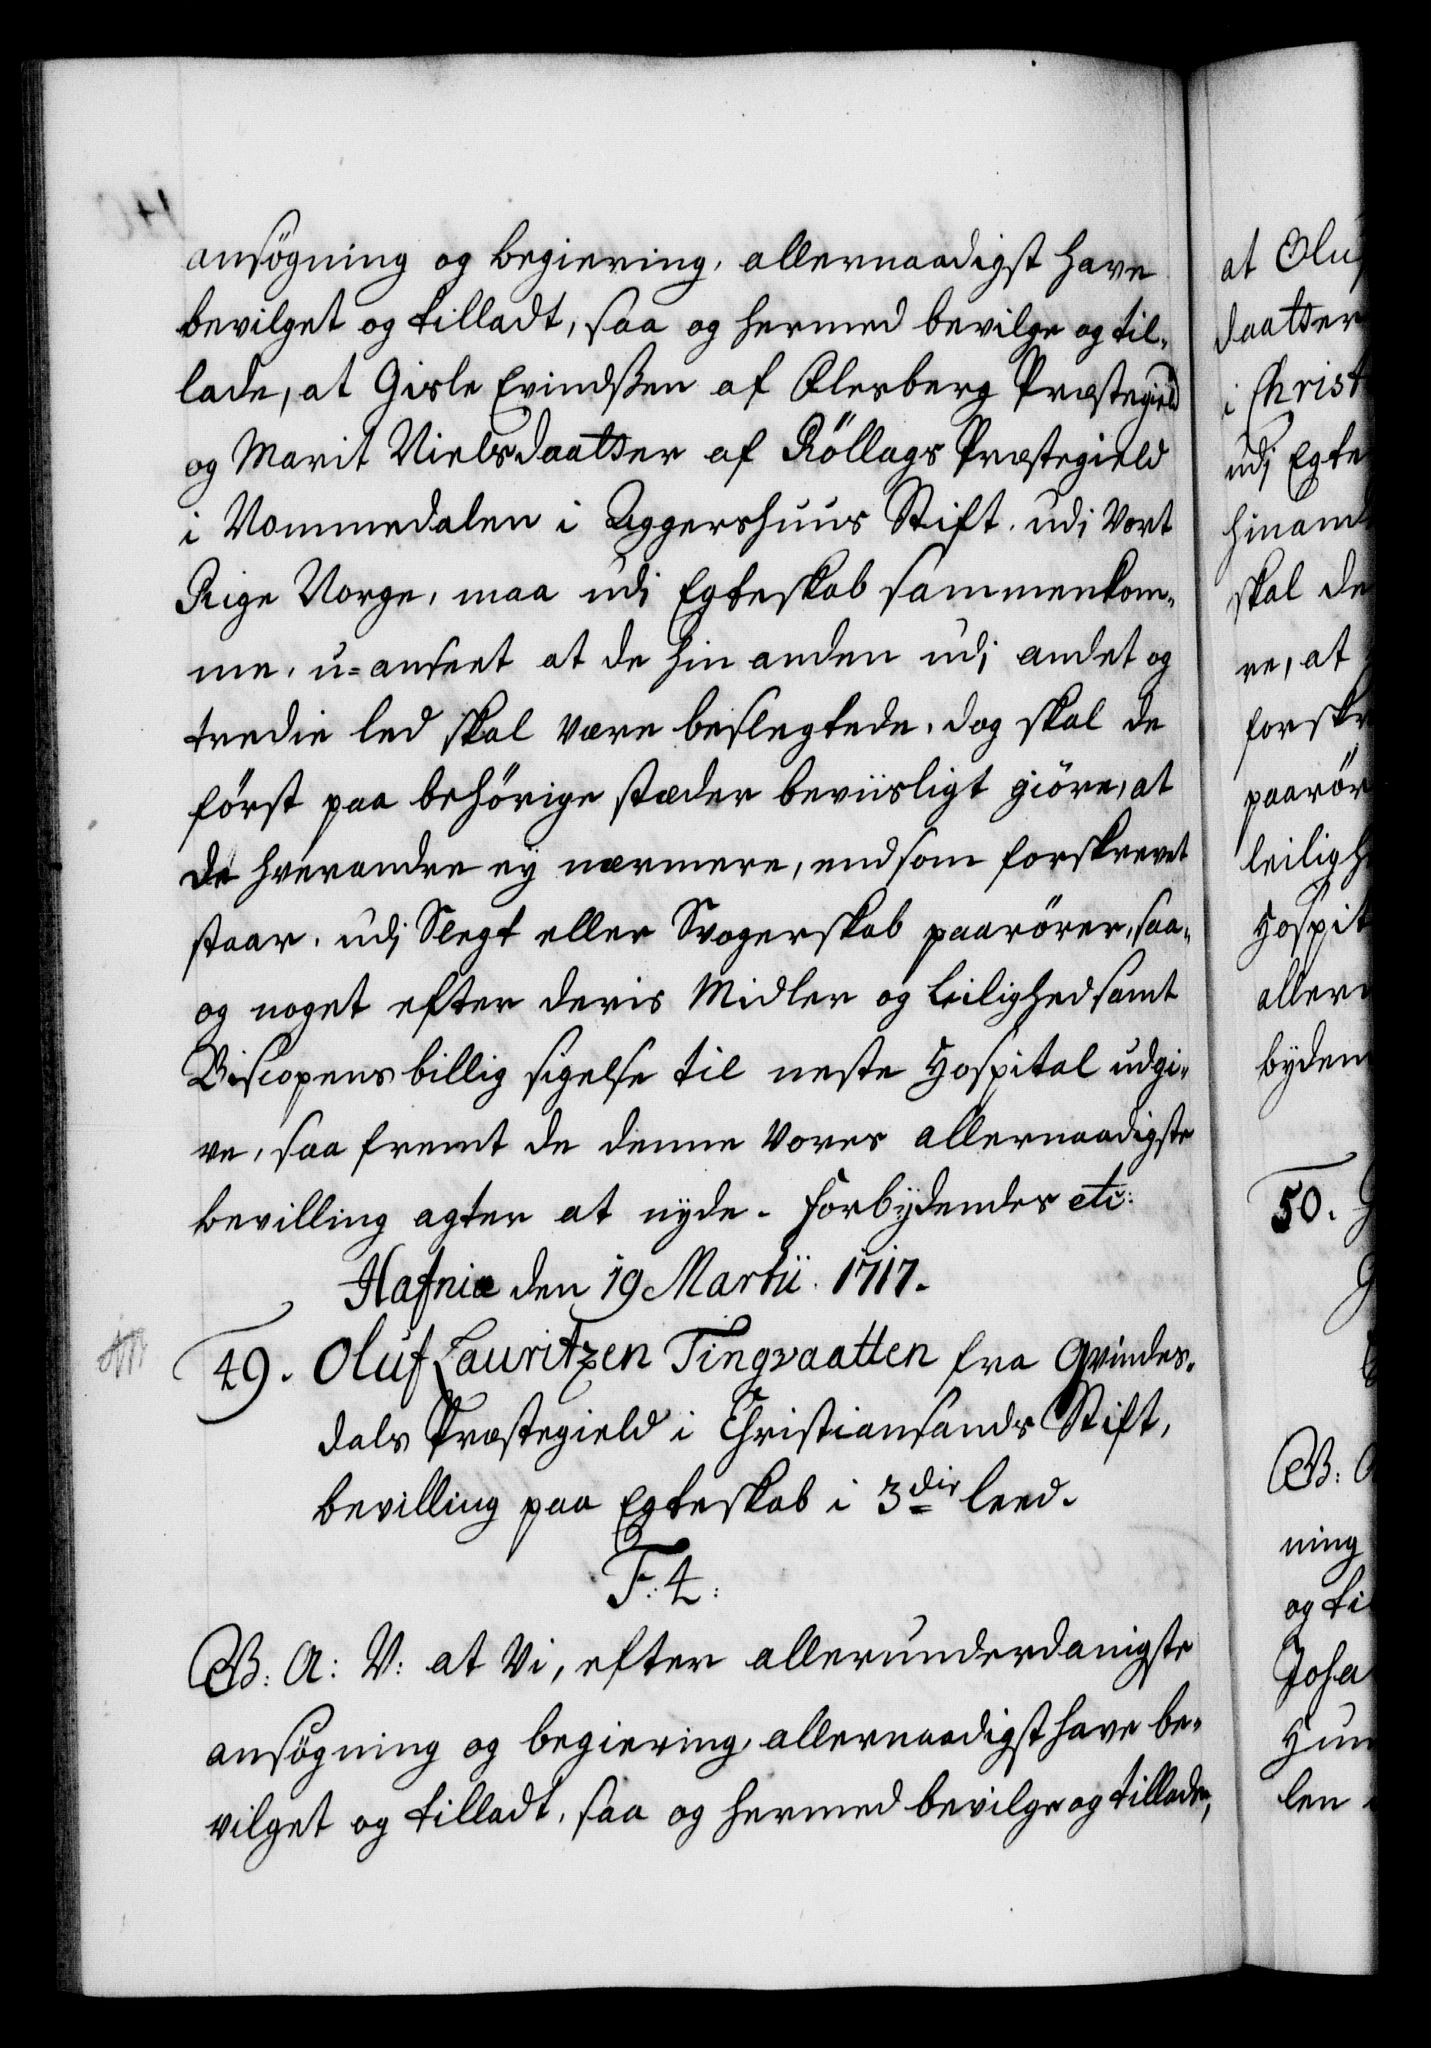 ansögning og begiering, allernaadigst have
bevilget og tilladt, saa og hermed bevilge og til-
lade, at Gisle Evindßen af Flesberg Præstegield
og Marit Nielsdaatter af Röllags Præstegield
i Nommedalen i Aggershuus Stift, udi Vort
Rige Norge, maa udi Egteskab sammenkom-
me, u-anseet at de hin anden udi andet og
tredie led skal være beslegtede, dog skal de
först paa behörige stæder beviisligt giöre, at
de hverandre ej nærmere, end som forskrevet
staar, udi Slegt eller Svogerskab paarörer, saa-
og noget efter deris Midler og Leilighed samt
Biscopens billig sigelse til neste Hospital udgi-
ve, saa fremt de denne Vores allernaadigste
bevilling agter at nyde. Forbydendes etc:
Hafniæ den 19 Martii 1717.
49. Oluf Lauritzen Tingvaatten fra Qvindes-
dals Præstegield i Christiansands Stift,
bevilling paa Egteskab i 3die leed.
F: 4:
G. A: V: at Vi, efter allerunderdanigste
ansögning og begiering allernaadigst have be-
vilget og tilladt, saa og hermed bevilge og tillade,
at Oluf
daatter
i Christ
udi Egte
hinand
skal de
re, at
forskr
paarör
leiligh
Hospit
aller
byden
50.
ning
og til
Joha
Hun
len